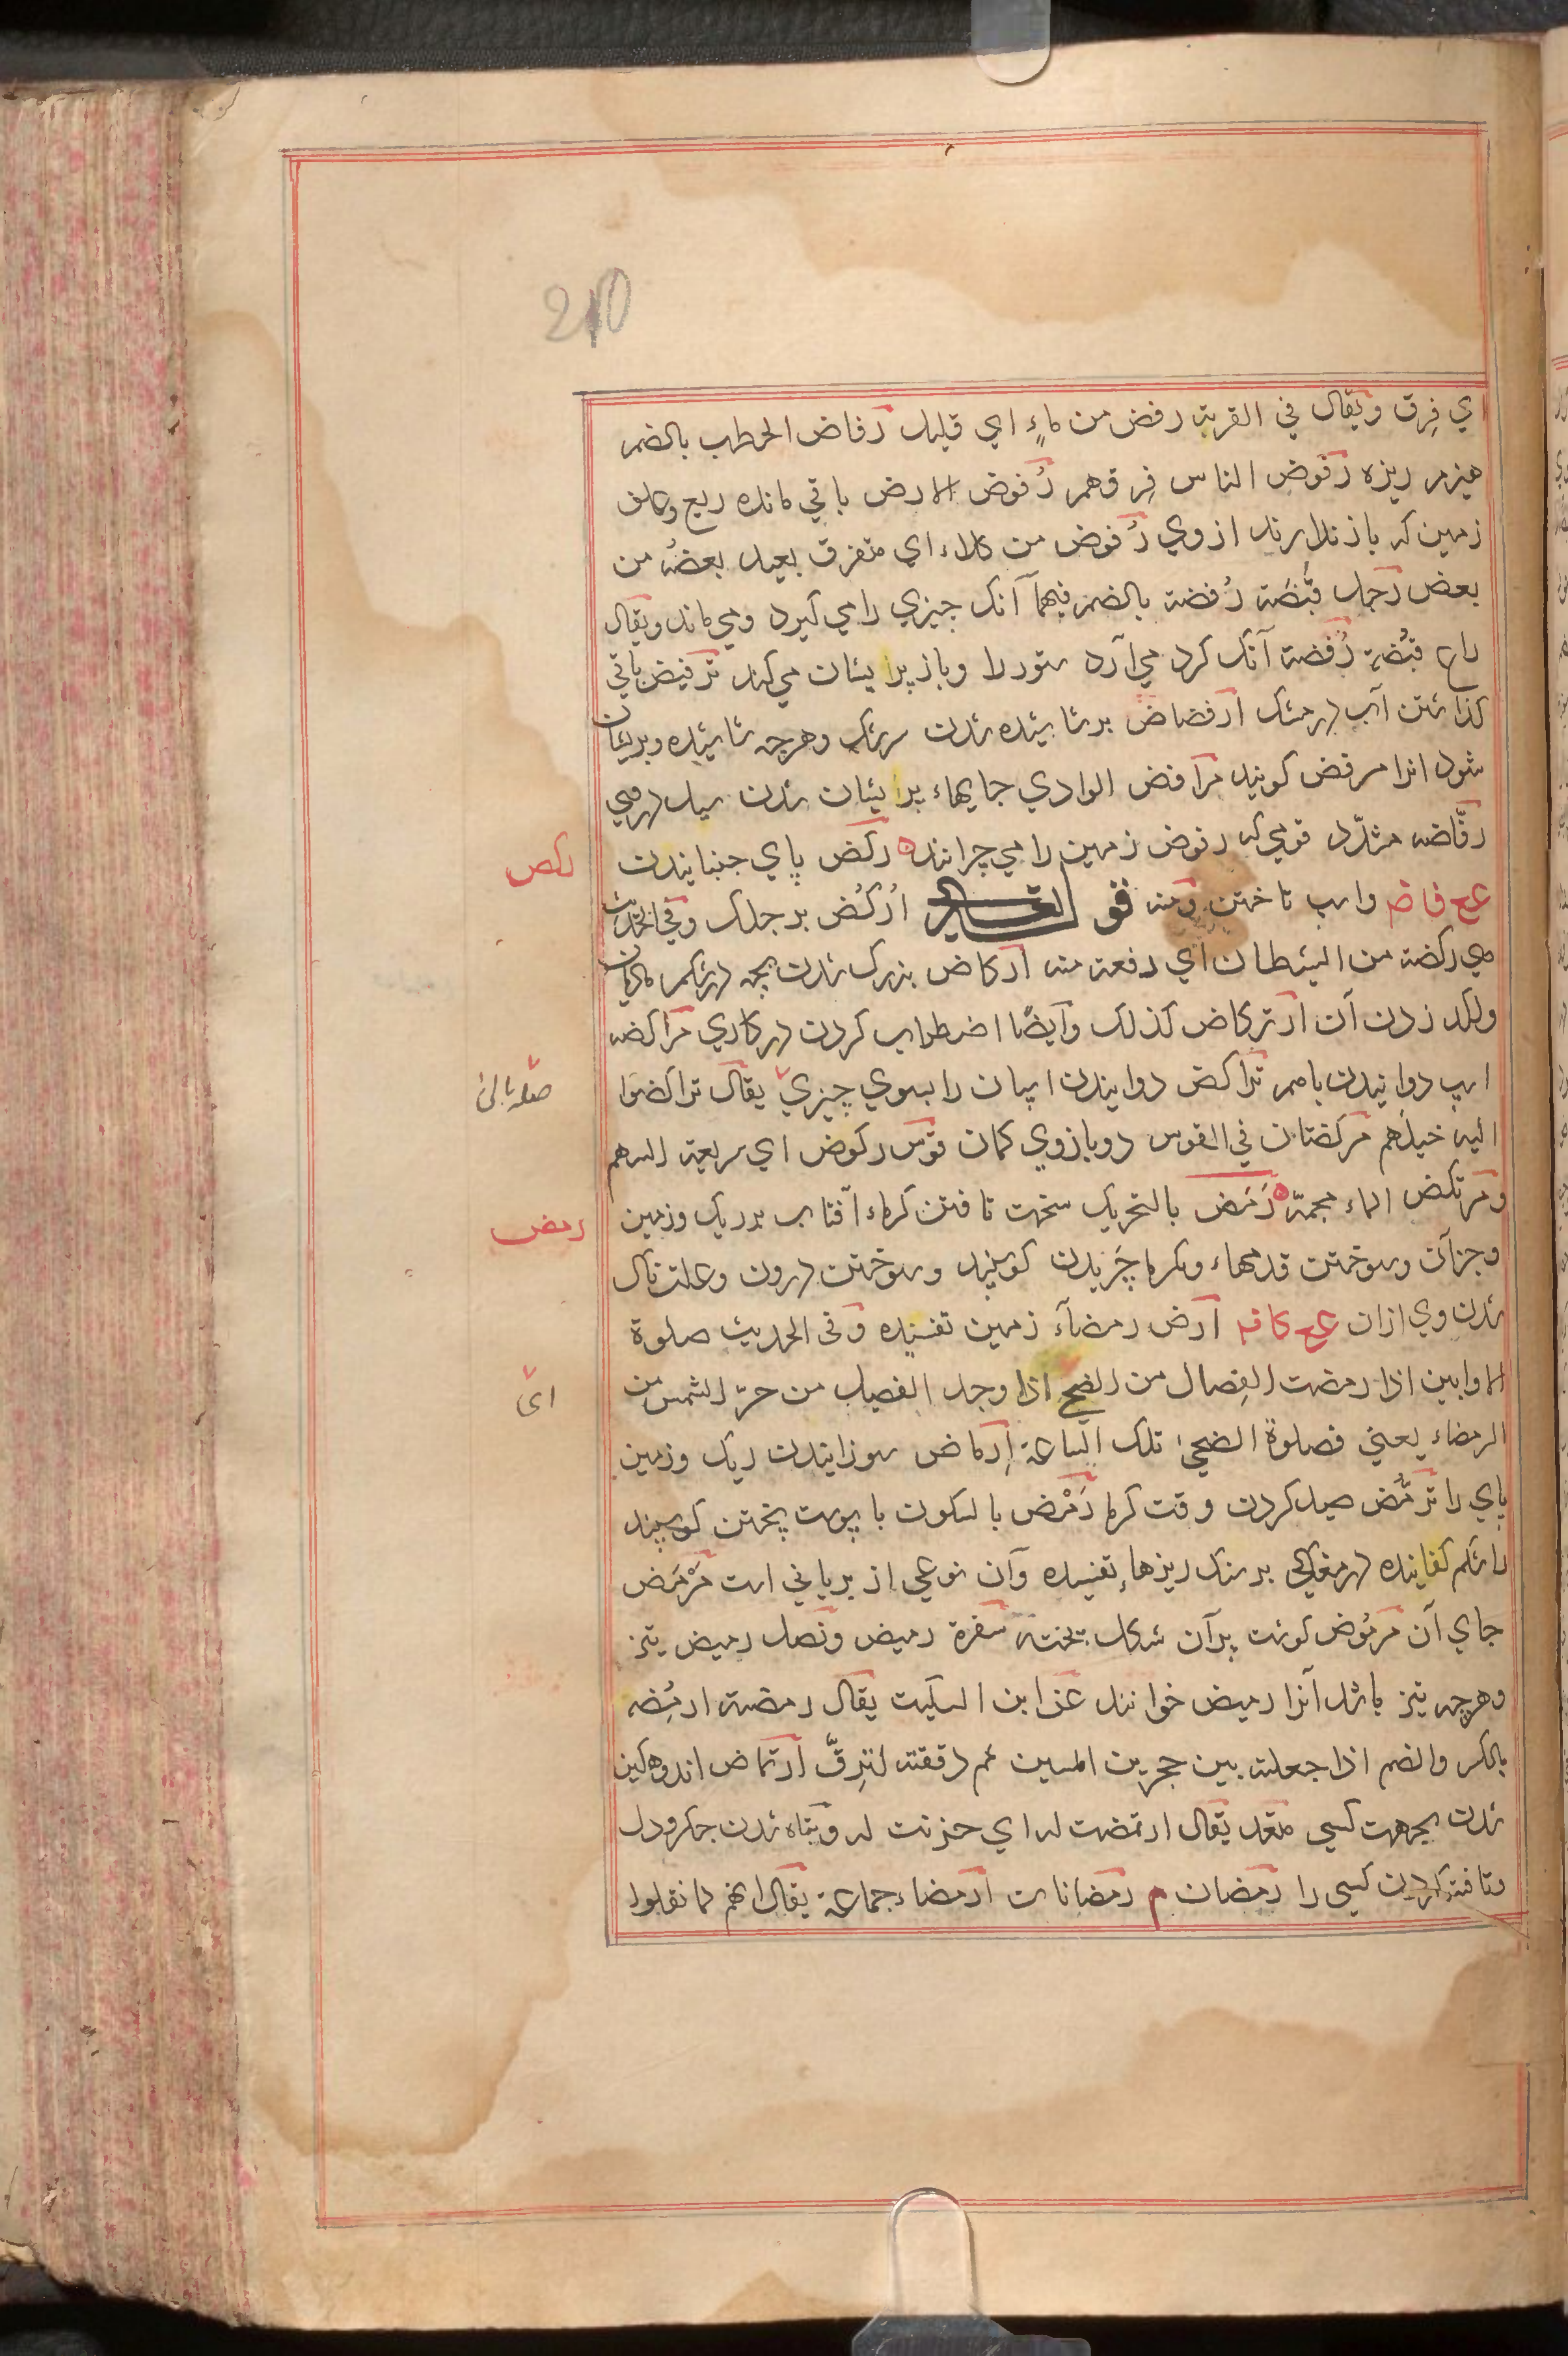 210
اي فِرق ويقال في القربة رفض من ماءٍ اي قليل رفاض الحطب بالضم
هيزم ريزه رفوض الناس فِرقهم رُفوض الارض باقي مانده ربع وكلف
زمين كه باز ندارند از وي رُفوض من كلاء اي متفرق بعيد بعضه من
بعض رجل قُبَضَة رُفضة بالضم فيهما آنك چيزي را مي كيرد ومي ماند ويقال
راع قُبَضة رُفضة آنك كرد مي آرد ستور را وباز پراشان مي كند ترفيض باقي
كذاشتن آب در مشك ارفضاض برشاشيده شدن سرشك وهرچه شاشيده وپريشان
شود انرا مرفض كويند مرافض الوادي جايهاء پراشان شدن سيل در وي
ركض
رفّاضه مشدّد قومي كه رفوض زمين را مي چرانند ركض پاي جنبانيدن
عع فاض واسب تاختن ومنه قو لتعالى اُركُض برجلك وفي الحديث
هي ركضة من الشيطان اي دفعة منه اركاض بزرك شدن بچه در شكم ماديان
ولكد زدن آن ارتركاض كذلك وايضًا اضطراب كردن در كاري مراكضه
اسب دوانيدن باهم تراكض دوانيدن اسپان را بسوي چيزي يقال تراكضوا
صله بالى
اليه خيلَهم مركضتان في القوس دو بازوي كمان قوس ركوض اي سريعة السهم
ومرتكض الماء مجمّه رَمَض بالتحريك سخت تافتن كرماء آفتاب بر ريك وزمين
رمض
وجزآن وسوختن قدمهاء وبكرما چَريدن كوسپند وسوختن درون وعلت ناك
شدن وي ازان عع كاف ارض رمضآء زمين تفسيده وفي الحديث صلوة
الاوابين اذا رمضت الفِصال من الضحى اذا وجد الفصيل من حرّ الشمس من
اى
الرمضاء يعني فصلوة الضحى تلك الساعة اِرماض سوزانيدن ريك وزمين
پاي را ترمّض صيد كردن وقت كرما رَمْض بالسكون با پوست پختن كوسپند
را شكم كفانيده در مغاكي بر سنك ريزهاء تفسيده وآن نوعي از برياني است مَرْمَض
جاي آن مرموض كوشت برآن شكل پخته شفرة رميض ونصل رميض تيز
وهرچه تيز باشد آنرا رميض خوانند عن ابن السكيت يقال رمضته ارمُضه
بالكسر والضم اذا جعلته بين حجرين املسين ثم دققته لترِقّ ارتماض اندوهكين
شدن بجهت كسي مقعد يقال ارتمضت له اي حزنت له وتباه شدن جكر ودل
وتافته كردن كسي را رمضان م رمضانات ارمضاء جماعة يقال انهم لما نقلوا